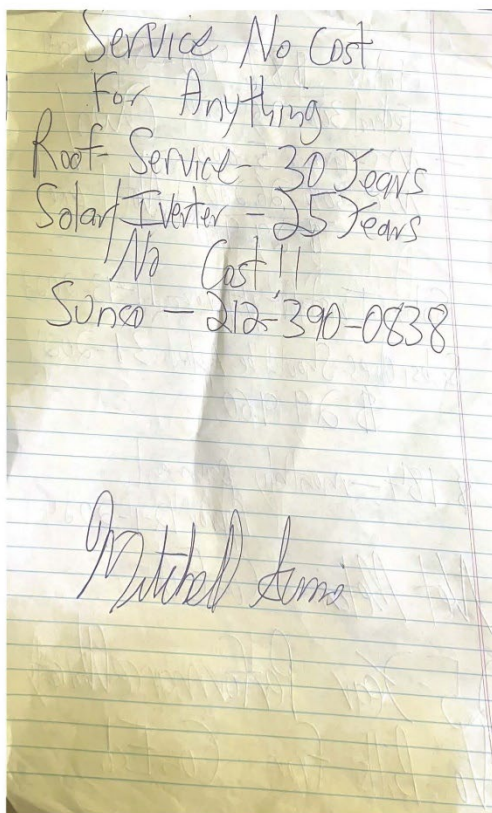 Service No Cost
For Anything
Roof Service - 30 Years
Solar/Iverter - 25 Years
No Cost!!
Sunco - 212-390-0838
Mitchell